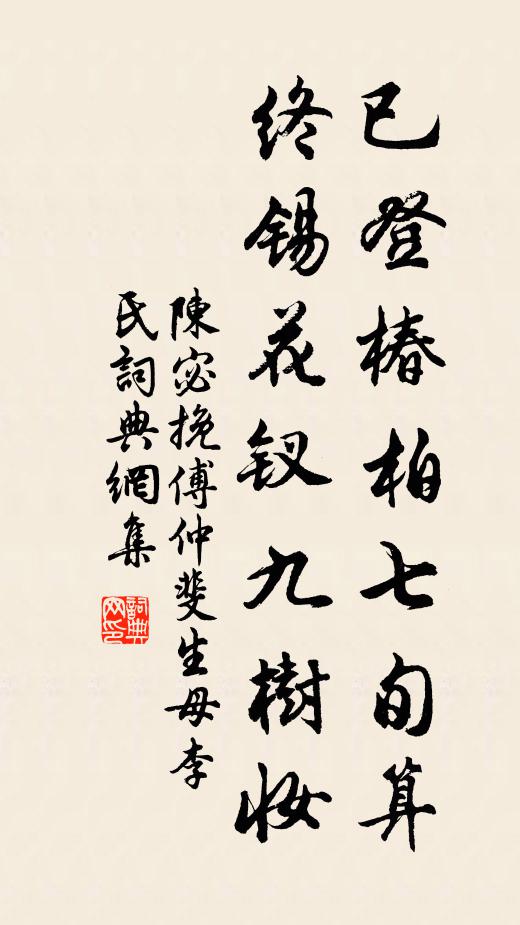 已登椿柏七旬算
终锡花钗九樹妝
陳宓挽傅仲斐生母李
氏詞典網集
詞典
网印